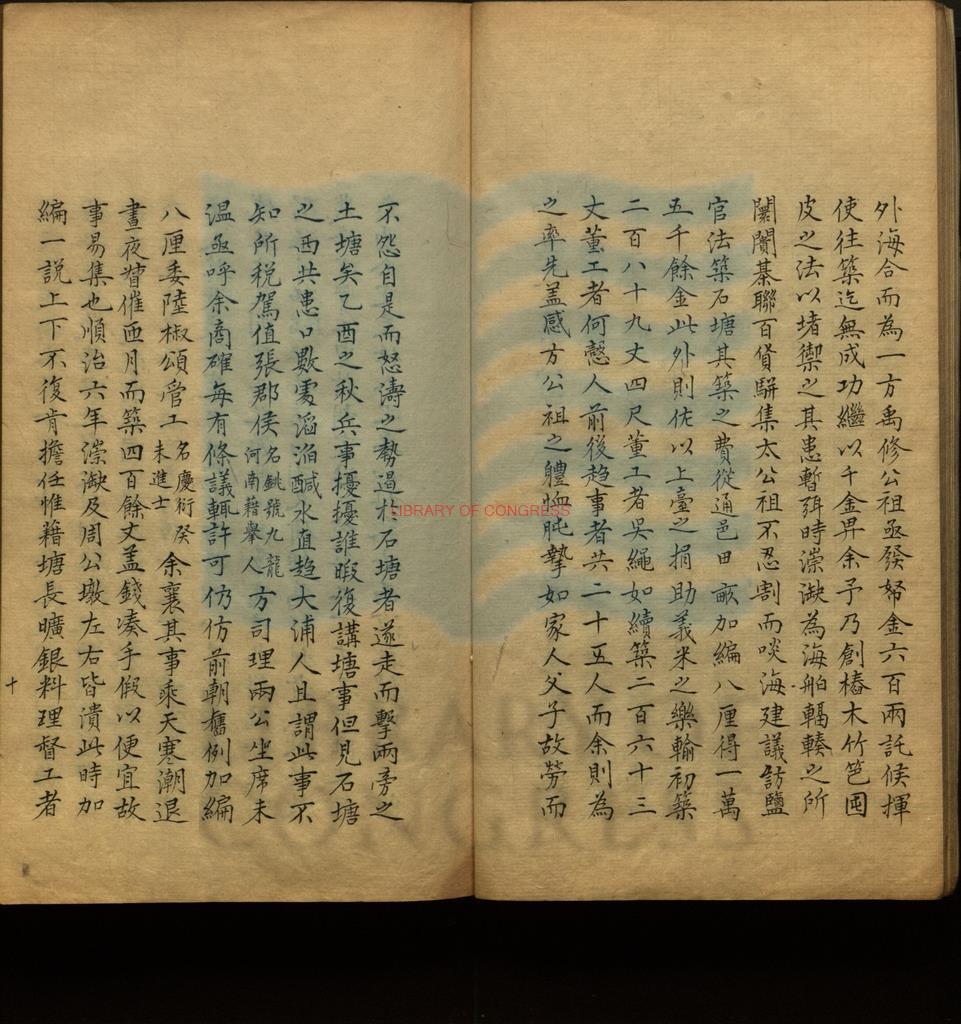 外海合而為一方禹修公祖亟發帑金六百兩託候揮
使往築迄無成功繼以千金畀余予乃創樁木竹笆囤
皮之法以堵禦之其患暫弭時漴缺為海舶輻輳之所
闤闠棊聯百貨駢集太公祖不忍割而啖海建議訪鹽
官法築石塘其築之費從通邑田畝加編八厘得一萬
五千餘金此外則佐以上臺之捐助義米之樂輸初築
二百八十九丈四尺董工者吳繩如續築二百六十三
丈董工者何慤人前後趨事者共二十五人而余則為
之率先盖感方公祖之軆恤肫摯如家人父子故勞而
不怨自是而怒濤之勢遏於石塘者遂走而擊兩旁之
土塘矣乙酉之秋兵事擾擾誰暇復講塘事但見石塘
之西共患口數處滔滔醎水直趨大浦人且謂此事不
知所税駕值張郡侯名銚號九龍河南藉舉人方司理兩公坐席未
温亟呼余商確每有條議輒許可仍仿前朝舊例加編
八厘委陸椒頌管工名慶衍癸未進士余襄其事乘天寒潮退
晝夜督催匝月而築四百餘丈盖錢凑手假以便宜故
事易集也順治六年漴缺及周公墩左右皆潰此時加
編一説上下不復肯擔任惟藉塘長曠銀料理督工者
十
LIBRARY OF CONGRESS